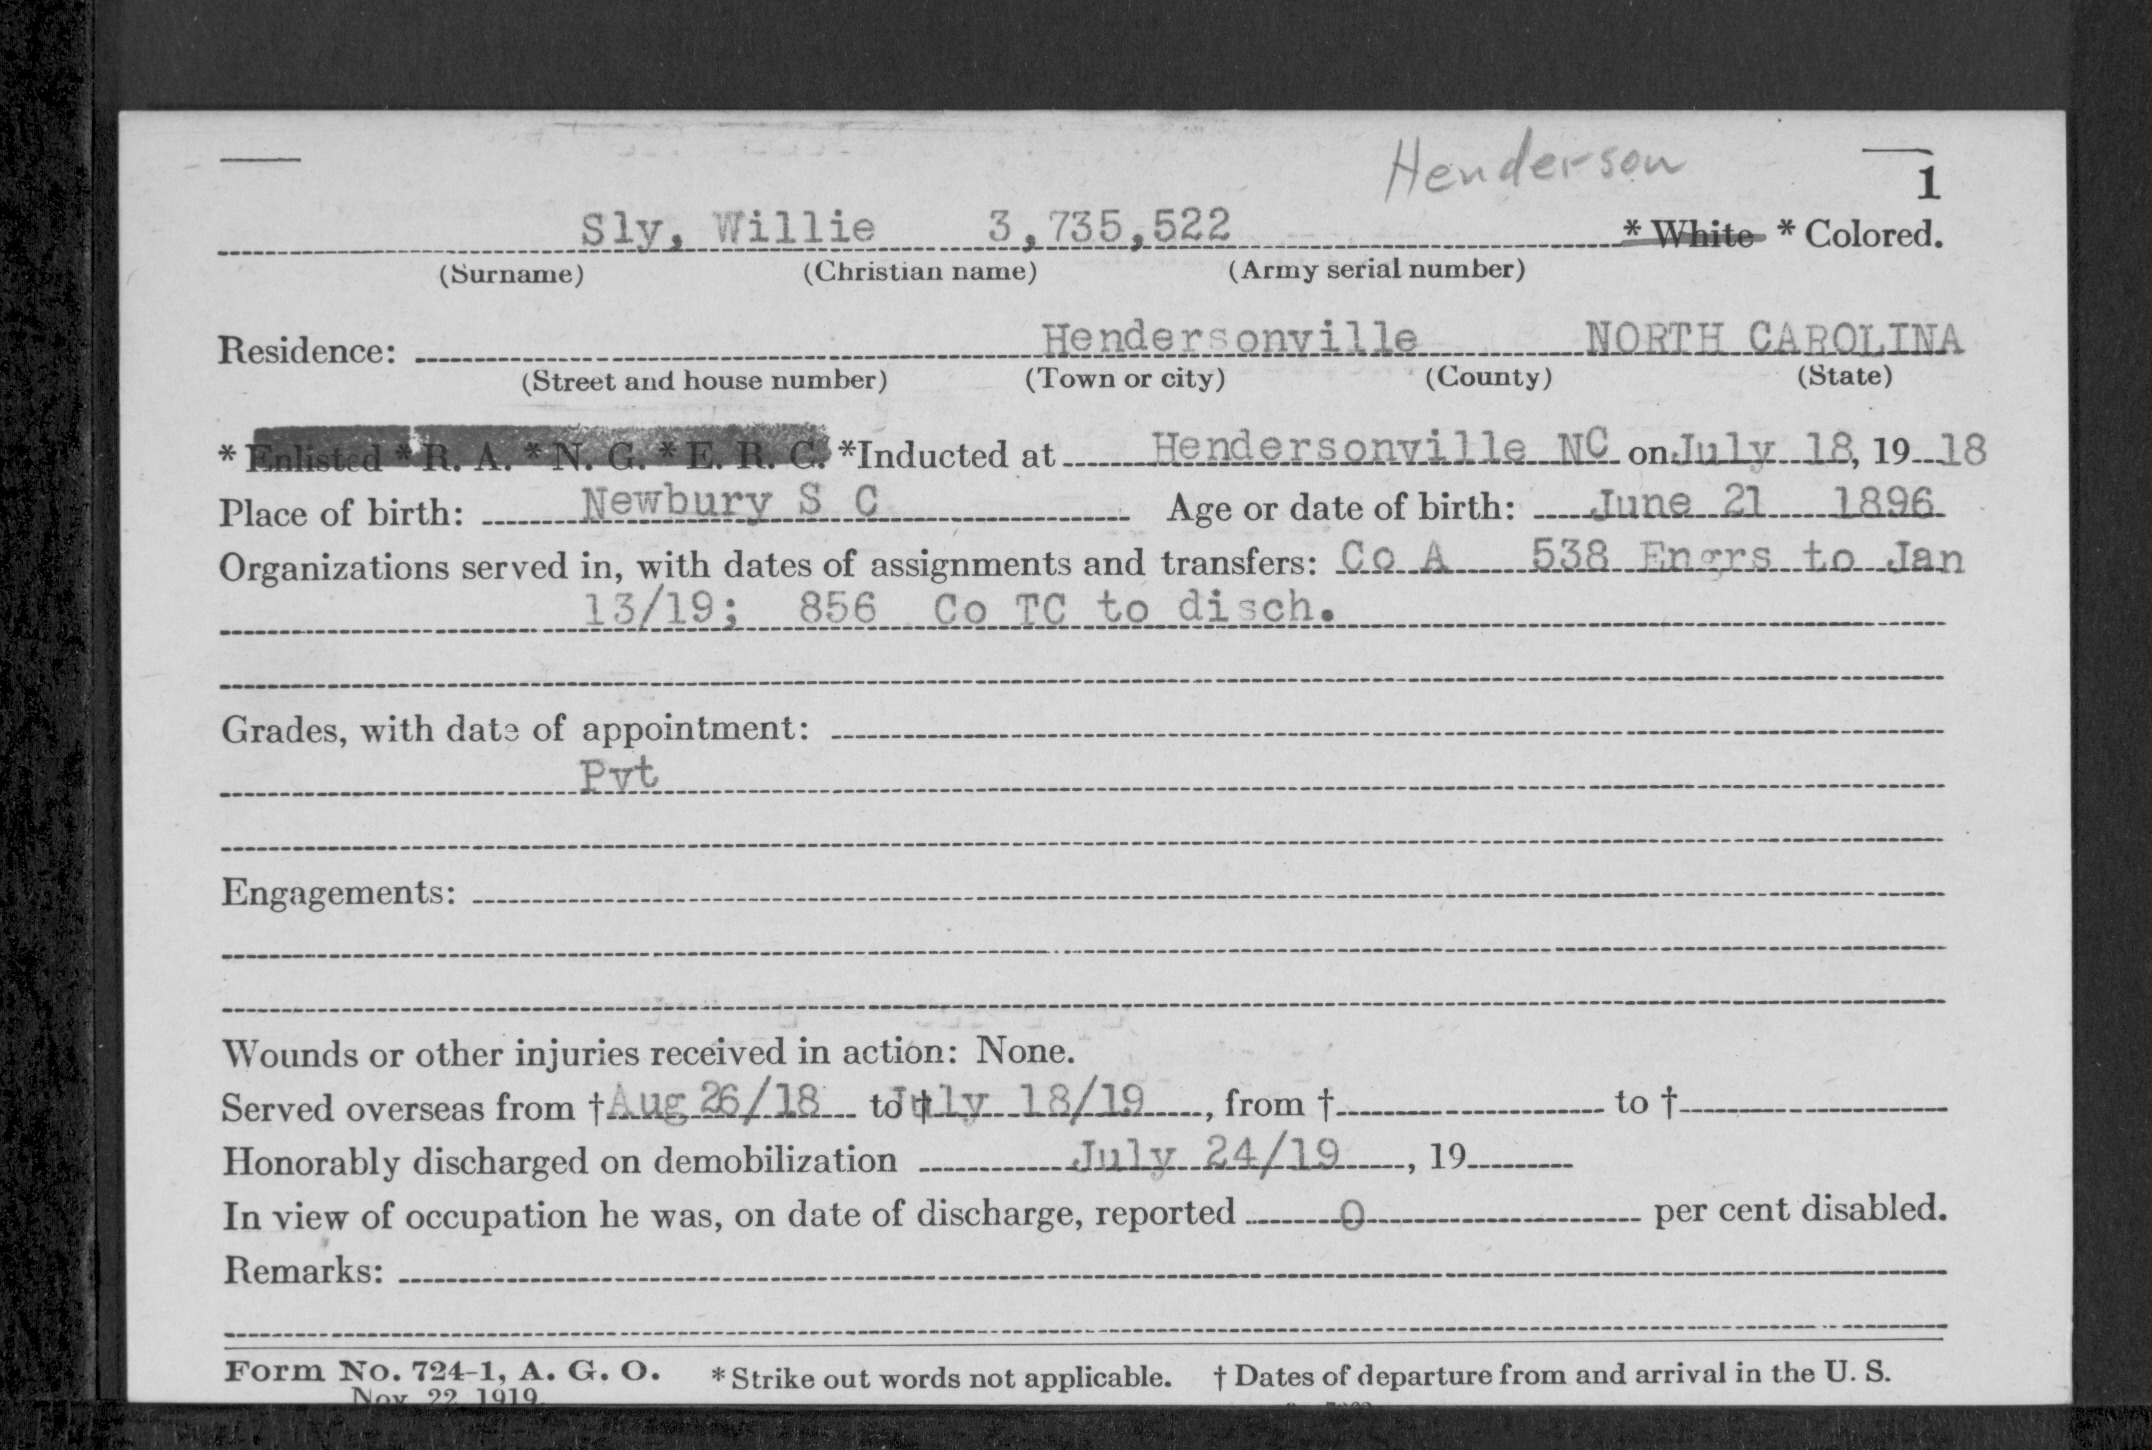 Henderson
1
Sly, Willie 3,735,522 * White * Colored.
(Surname) (Christian name) (Army serial number)
Residence: Hendersonville NORTH CAROLINA
(Street and house number) (Town or city) (County) (State)
* Enlisted * R. A. * N. G. * E. R. C. *Inducted at Hendersonville NC on July 18, 19 18
Place of birth: Newbury S C Age or date of birth: June 21 1896
Organizations served in, with dates of assignments and transfers: Co A 538 Engrs to Jan
13/19; 856 Co TC to disch.
Grades, with date of appointment:
Pvt
Engagements:
Wounds or other injuries received in action: None.
Served overseas from † Aug 26/18 to † July 18/19, from † to †
Honorably discharged on demobilization July 24/19, 19
In view of occupation he was, on date of discharge, reported 0 per cent disabled.
Remarks:
Form No. 724-1, A. G. O. * Strike out words not applicable. † Dates of departure from and arrival in the U. S.
Nov. 22, 1919.